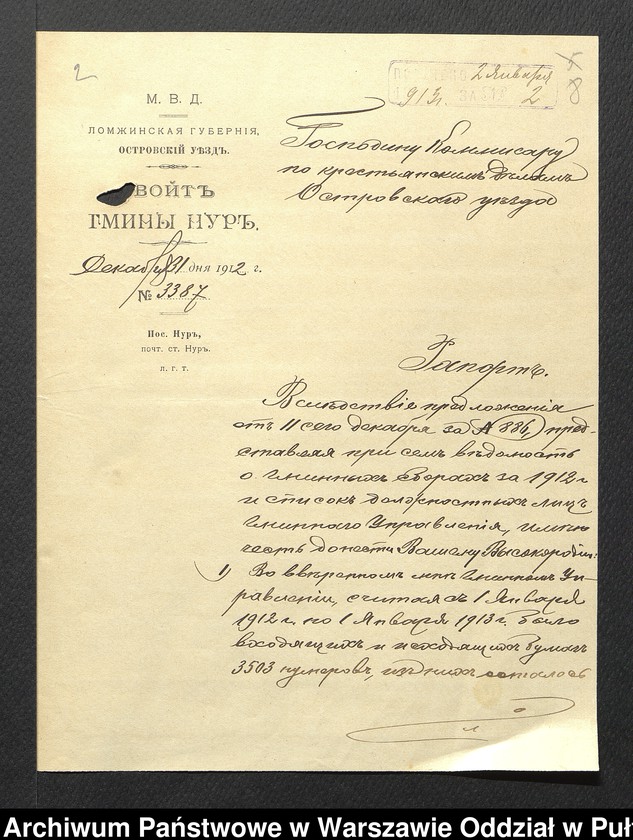 2
ПОЛУЧЕНО 2 Января
1913 г. ЗА № 2
5
8
М. В. Д.
ЛОМЖИНСКАЯ ГУБЕРНІЯ,
ОСТРОВСКІЙ УѢЗДЪ.
ВОЙТЪ
ГМИНЫ НУРЪ.
Декабря 31 дня 1912 г.
№ 3387
Пос. Нуръ,
почт. ст. Нуръ.
л. г. т.
Господину Коммисару
по крестьянскимъ Дѣламъ
Островскаго уѣзда
Рапортъ.
Вслѣдствіе предложенія
отъ 11 сего декабря за № 886, пред-
ставляя при семъ вѣдомость
о гминныхъ сборахъ за 1912 г
и списокъ должностныхъ лицъ
Гминнаго Управленія, имѣю
честь донести Вашему Высокородію:
1) Во ввѣренномъ мнѣ Гминномъ Уп-
равленіи, считая съ 1 Января
1912 г. по 1 Января 1913 г. было
входящихъ и исходящихъ бумагъ
3503 нумеровъ, изъ нихъ осталось
Archiwum Państwowe w Warszawie Oddział w Puł